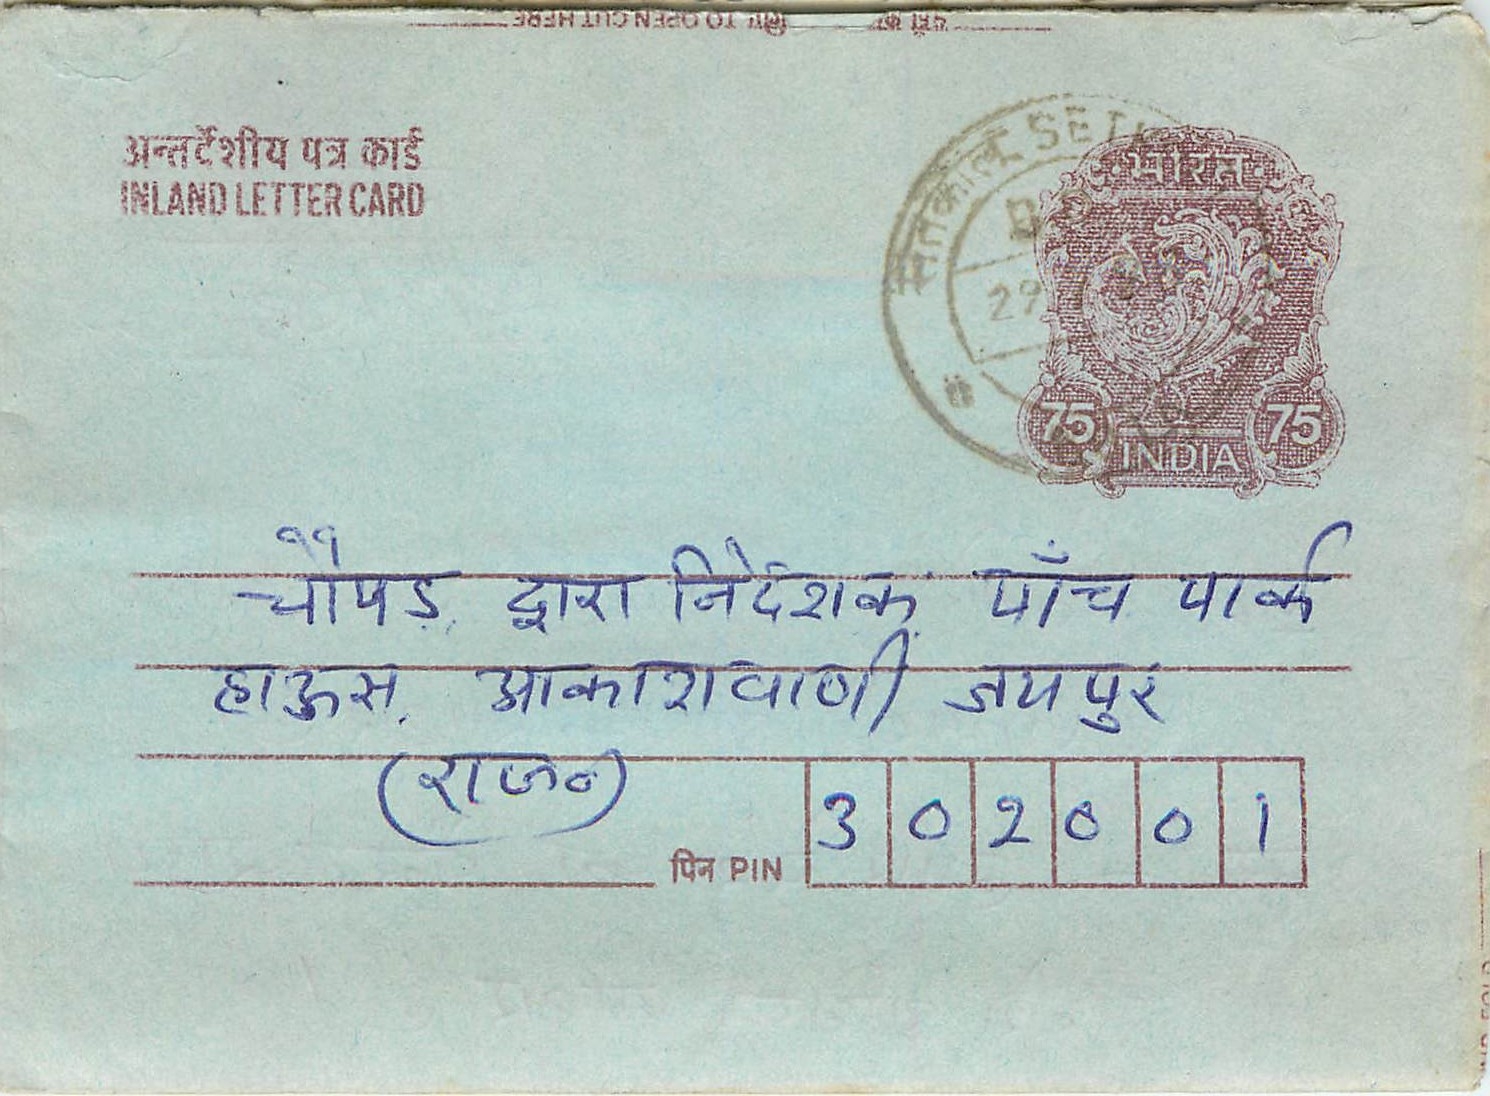 TO OPEN CUT HERE
अन्तर्देशीय पत्र कार्ड
INLAND LETTER CARD
भारत
75 75
INDIA
29
चौपड़, द्वारा निर्देशक, पाँच पार्क
हाऊस, आकाशवाणी जयपुर
(राज०)
पिन PIN 302001